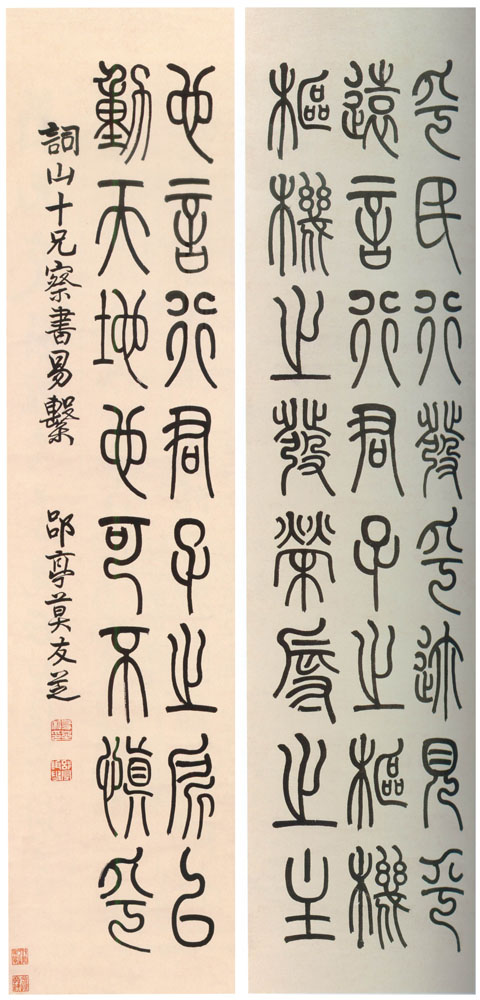 乎民行發乎迩見乎
遠言行君子之樞機
樞機之發榮辱之主
也言行君子之所以
動天地也可不慎乎
詞山十兄察書易繫 郘亭莫友芝